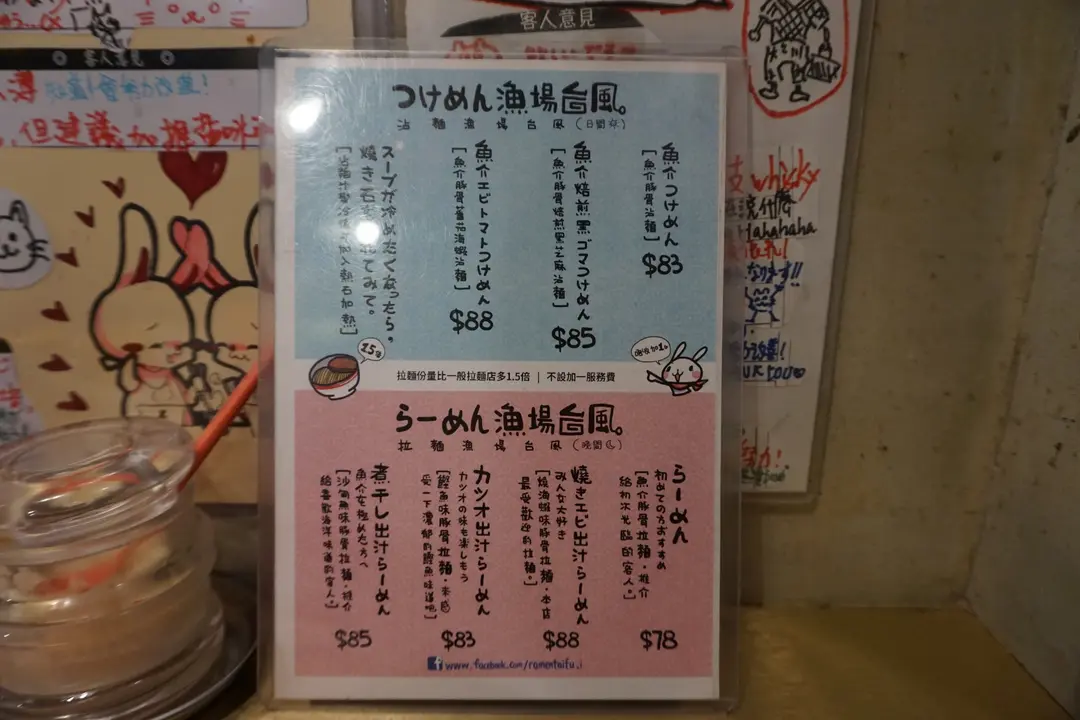 客人意見
客人意見
但建議加
whisky
Hahahaha
なります!!
つけめん漁場台風。
沾麵漁場台風(日間)
魚介つけめん
[魚介豚骨沾麵]
$83
魚介焙煎黒ゴマつけめん
[魚介豚骨焙煎黑芝麻沾麵]
$85
魚介エビトマトつけめん
[魚介豚骨蕃茄海蝦沾麵]
$88
スープが冷めたくなったら。
焼き石を入れてみて。
加入熱石加熱]
1.5倍
拉麵份量比一般拉麵店多1.5倍 | 不設加一服務費
らーめん漁場台風。
拉麵漁場台風(晚間)
らーめん
初めての方おすすめ
[魚介豚骨拉麵・推介
給初次光臨的客人。]
$78
焼きエビ出汁らーめん
みんな大好き
[燒海蝦味豚骨拉麵・本店
最受歡迎的拉麵。]
$88
カツオ出汁らーめん
カツオの味も楽しもう
[鰹魚味豚骨拉麵・來感
受一下濃郁的鰹魚味道吧]
$83
煮干し出汁らーめん
魚介を極めた方へ
[沙甸魚味豚骨拉麵・推介
給喜歡海洋味道的客人。]
$85
www.facebook.com/ramentaifu.i